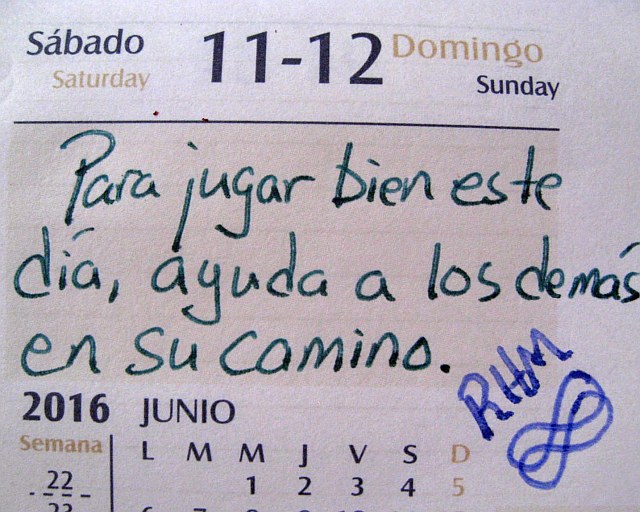 Sábado 11-12 Domingo
Saturday Sunday
Para jugar bien este
día, ayuda a los demás
en su camino.
RHM
2016 JUNIO
Semana L M M J V S D
22 1 2 3 4 5